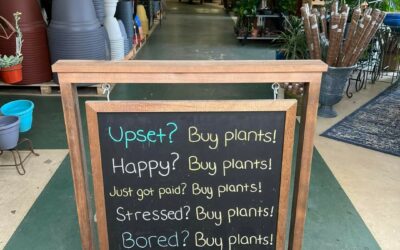 Upset? Buy plants!
Happy? Buy plants!
Just got paid? Buy plants!
Stressed? Buy plants!
Bored? Buy plants!